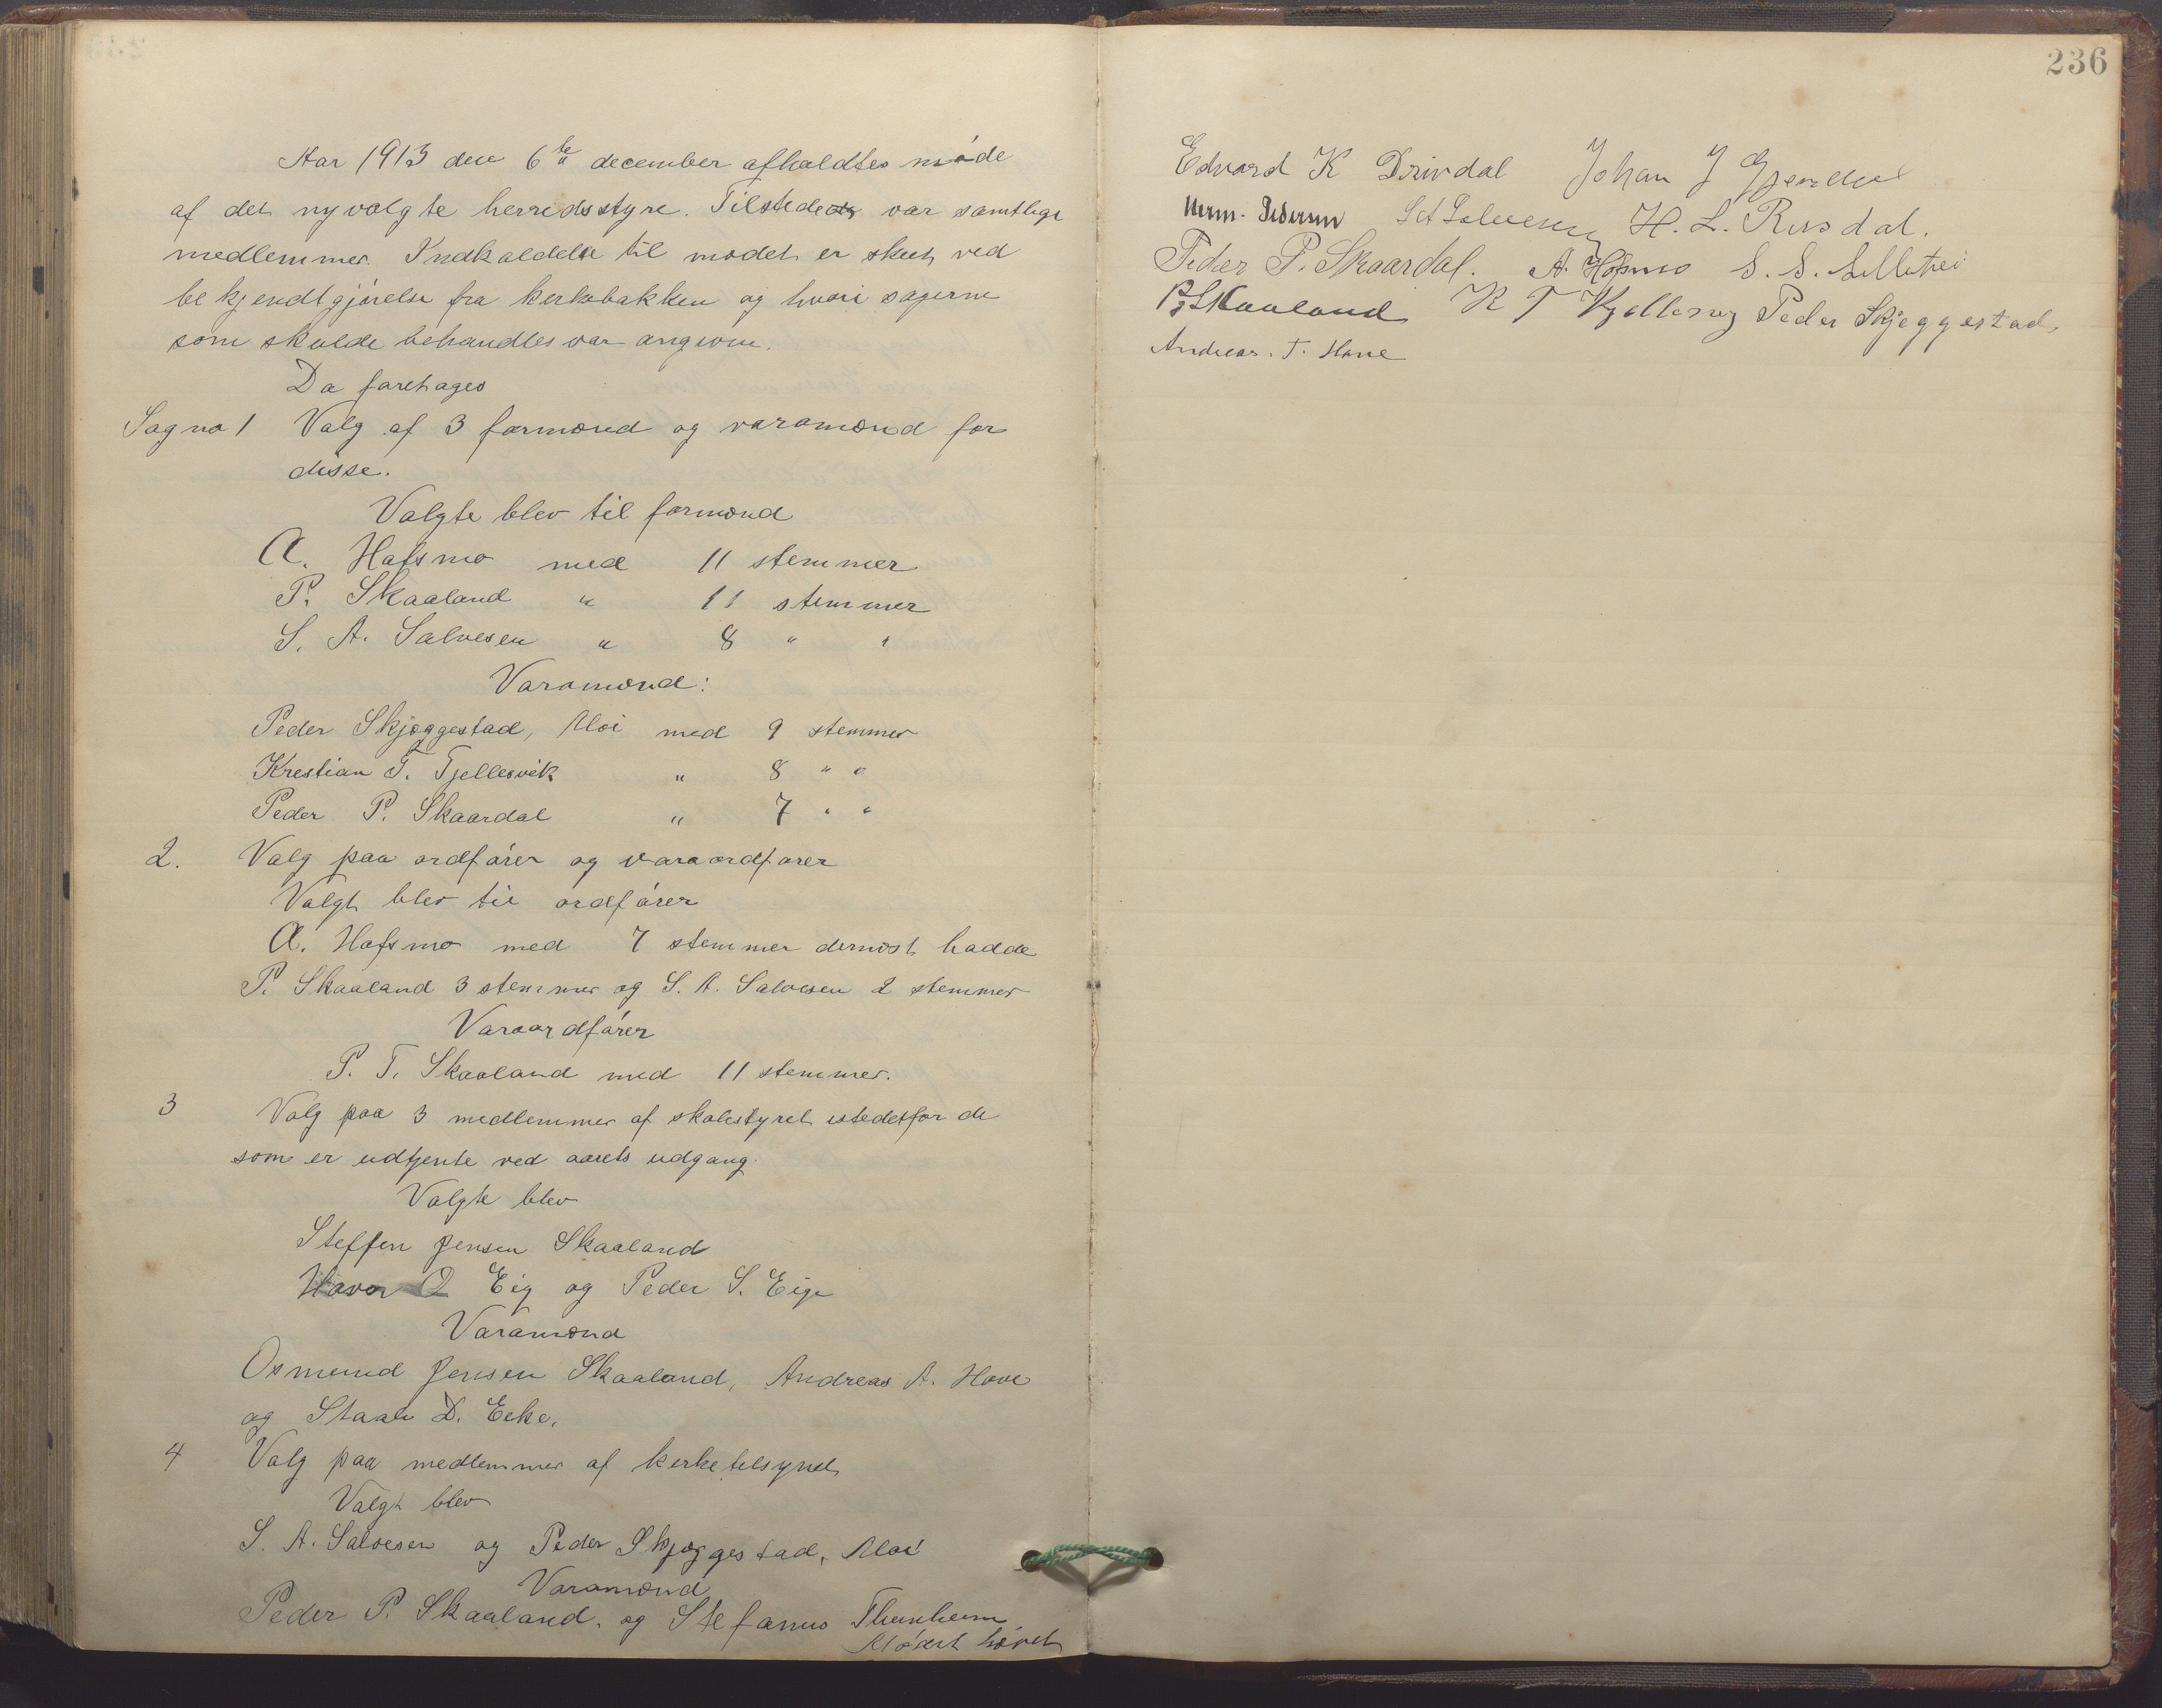 Aar 1913 den 6te december afholdtes møde
af det nyvalgte herredsstyre. Tilstede var samtlige
medlemmer. Indkaldelse til mødet er skeet ved
bekjendtgjørelse fra kerkebakken og hvori sagerne
som skulde behandles var angivne.
Da foretages
Sag no 1 Valg af 3 formænd og varamænd for
disse.
Valgte blev til formænd
A. Hafsmo med 11 stemmer
P. Skaaland " 11 stemmer
S. A. Salvesen " 8 " "
Varamænd:
Peder Skjæggestad, Moi med 9 stemmer
Krestian T. Tjellesvik " 8 " "
Peder P. Skaardal " 7 " "
2. Valg paa ordfører og varaordfører
Valgt blev til ordfører
A. Hafsmo med 7 stemmer dernæst hadde
P. Skaaland 3 stemmer og S. A. Salvesen 2 stemmer
Varaordfører
P. T. Skaaland med 11 stemmer.
3 Valg paa 3 medlemmer af skolestyret istedetfor de
som er udtjente ved aarets udgang.
Valgte blev
Steffen Jensen Skaaland
Havor O Eig og Peder S. Eige
Varamænd
Osmund Jensen Skaaland, Andreas A. Hove
og Staale D. Eeke.
4 Valg paa medlemmer af kerketelsynet
Valgt blev
S. A. Salvesen og Peder Skjæggestad, Moi
Varamænd
Peder P. Skaaland. og Stefanus Thunheim
Mødet hævet
236
Edvard K Drivdal Johan J
Herm. Pedersen H. L. Rusdal.
Peder P. Skaardal. A. Hafsmo S. S.
Skaaland K T Peder Skjeggestad,
Andreas. T. Hove